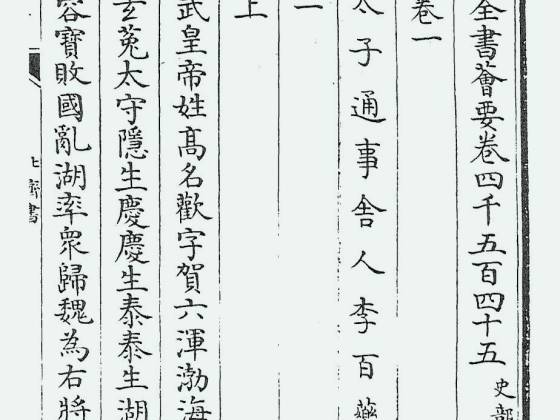 全書薈要卷四千五百四十五 史部
卷一
太子通事舍人李百藥
一
上
武皇帝姓髙名歡字賀六渾渤海
𤣥菟太守隱生慶慶生泰泰生湖
容寶敗國亂湖率衆歸魏為右將
北齊書